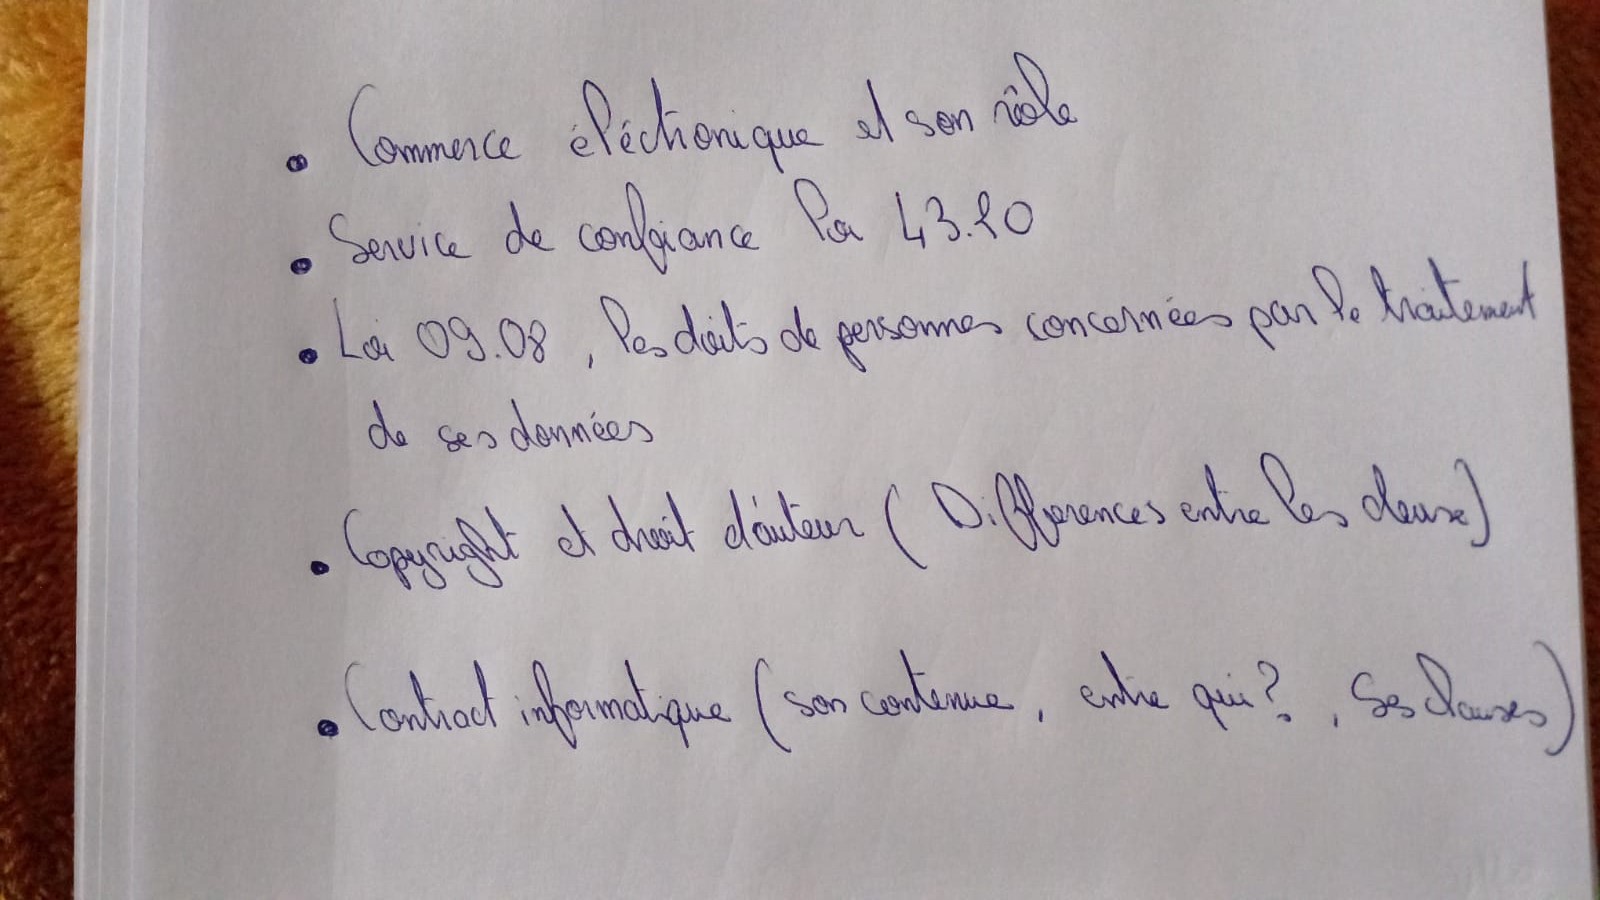 • Commerce éléctronique et son rôle
• Service de confiance loi 43.20
• Loi 09.08, les droits de personnes concernées par le traitement
de ses données
• Copyright et droit d'auteur (Differences entre les deux)
• Contract informatique (son contenue, entre qui?, Ses clauses)